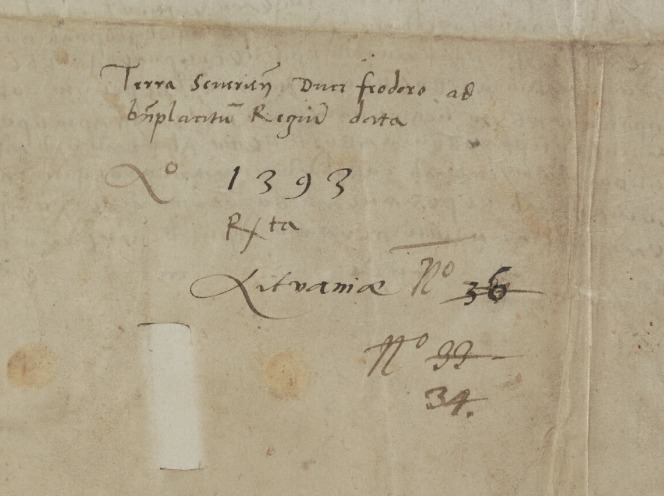 Terra Severień Duci feodoro ad
bńplacitū Regiū data
Ao 1393
Rxta
Litvaniæ No 36
No 33
34.